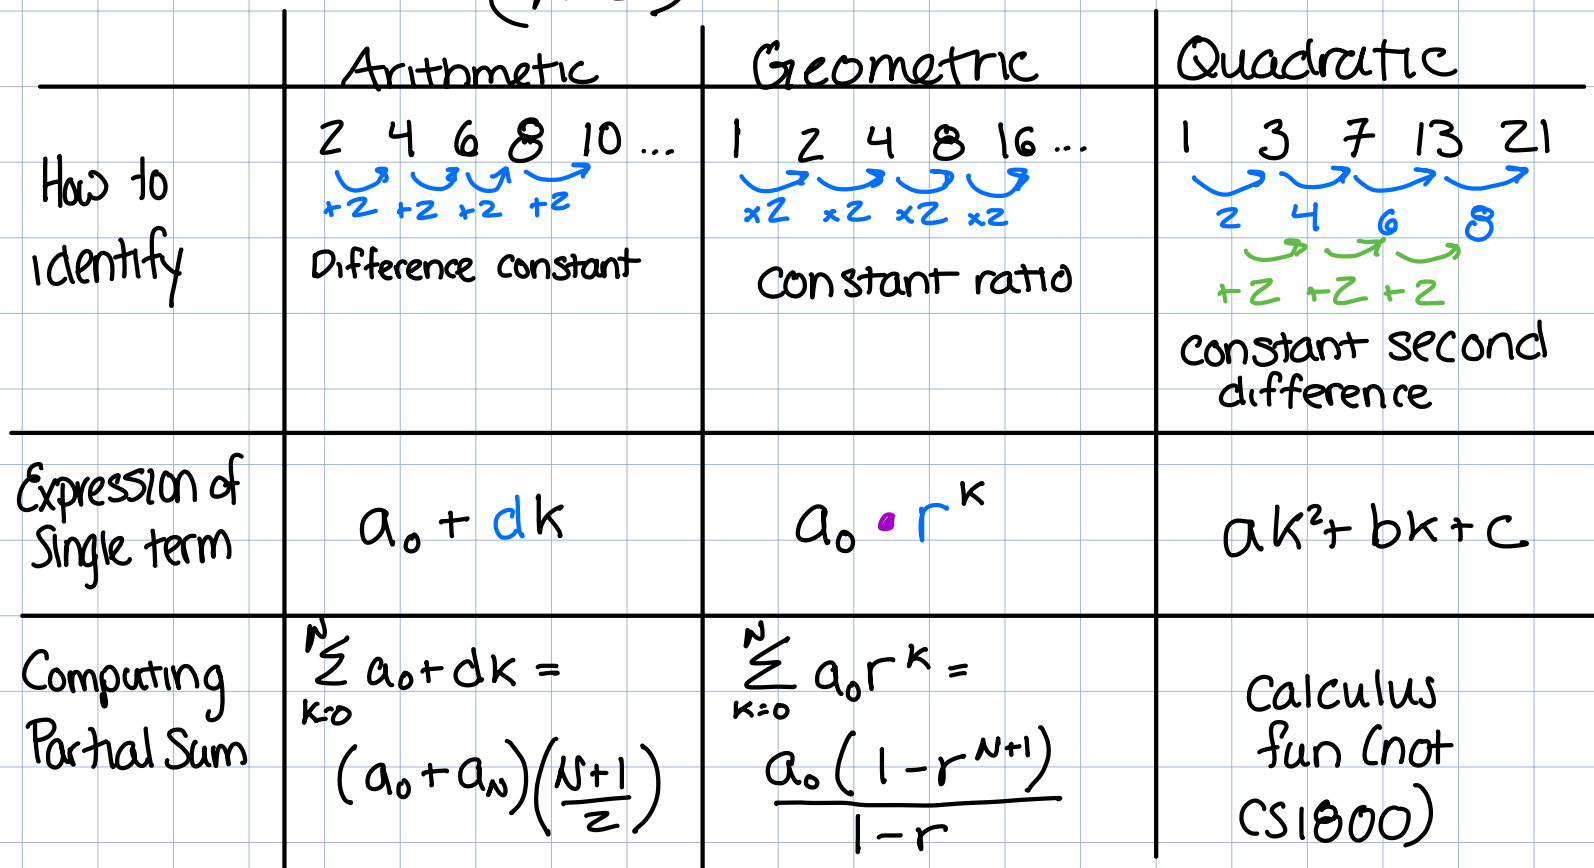 Arithmetic Geometric Quadratic
How to identify
2 4 6 8 10 ...
+2 +2 +2 +2
Difference constant
1 2 4 8 16 ...
x2 x2 x2 x2
constant ratio
1 3 7 13 21
2 4 6 8
+2 +2 +2
constant second
difference
Expression of
Single term
a₀ + dk
a₀ • r^k
ak² + bk + c
Computing
Partial Sum
N
∑ a₀ + dk =
k=0
(a₀ + a_N)((N+1)/2)
N
∑ a₀r^k =
k=0
a₀(1 - r^(N+1))
1 - r
Calculus
fun (not
CS1800)